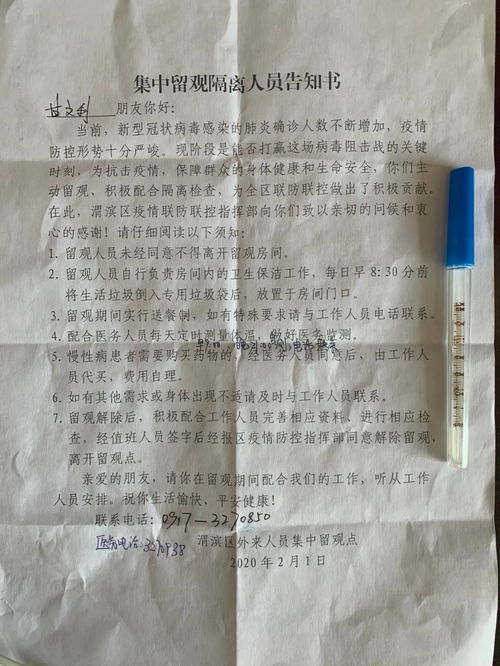 集中留观隔离人员告知书
甘文利 朋友你好:
当前,新型冠状病毒感染的肺炎确诊人数不断增加,疫情
防控形势十分严峻。现阶段是能否打赢这场病毒阻击战的关键
时刻,为抗击疫情,保障群众的身体健康和生命安全,你们主
动留观、积极配合隔离检查,为全区联防联控做出了积极贡献。
在此,渭滨区疫情联防联控指挥部向你们致以亲切的问侯和衷
心的感谢!请仔细阅读以下须知:
1. 留观人员未经同意不得离开留观房间。
2. 留观人员自行负责房间内的卫生保洁工作,每日早8:30分前
将生活垃圾倒入专用垃圾袋后,放置于房间门口。
3. 留观期间实行送餐制,如有特殊要求请与工作人员电话联系。
4. 配合医务人员每天定时测量体温,做好医务监测。
5. 慢性病患者需要购买药物的,经医务人员同意后,由工作人
员代买,费用自理。
6. 如有其他需求或身体出现不适请及时与工作人员联系。
7. 留观解除后,积极配合工作人员完善相应资料、进行相应检
查,经值班人员签字后经报区疫情防控指挥部同意解除留观,
离开留观点。
亲爱的朋友,请你在留观期间配合我们的工作,听从工作
人员安排。祝你生活愉快、平安健康!
联系电话:0917-3270850
医务电话:3270938
渭滨区外来人员集中留观点
2020年2月1日